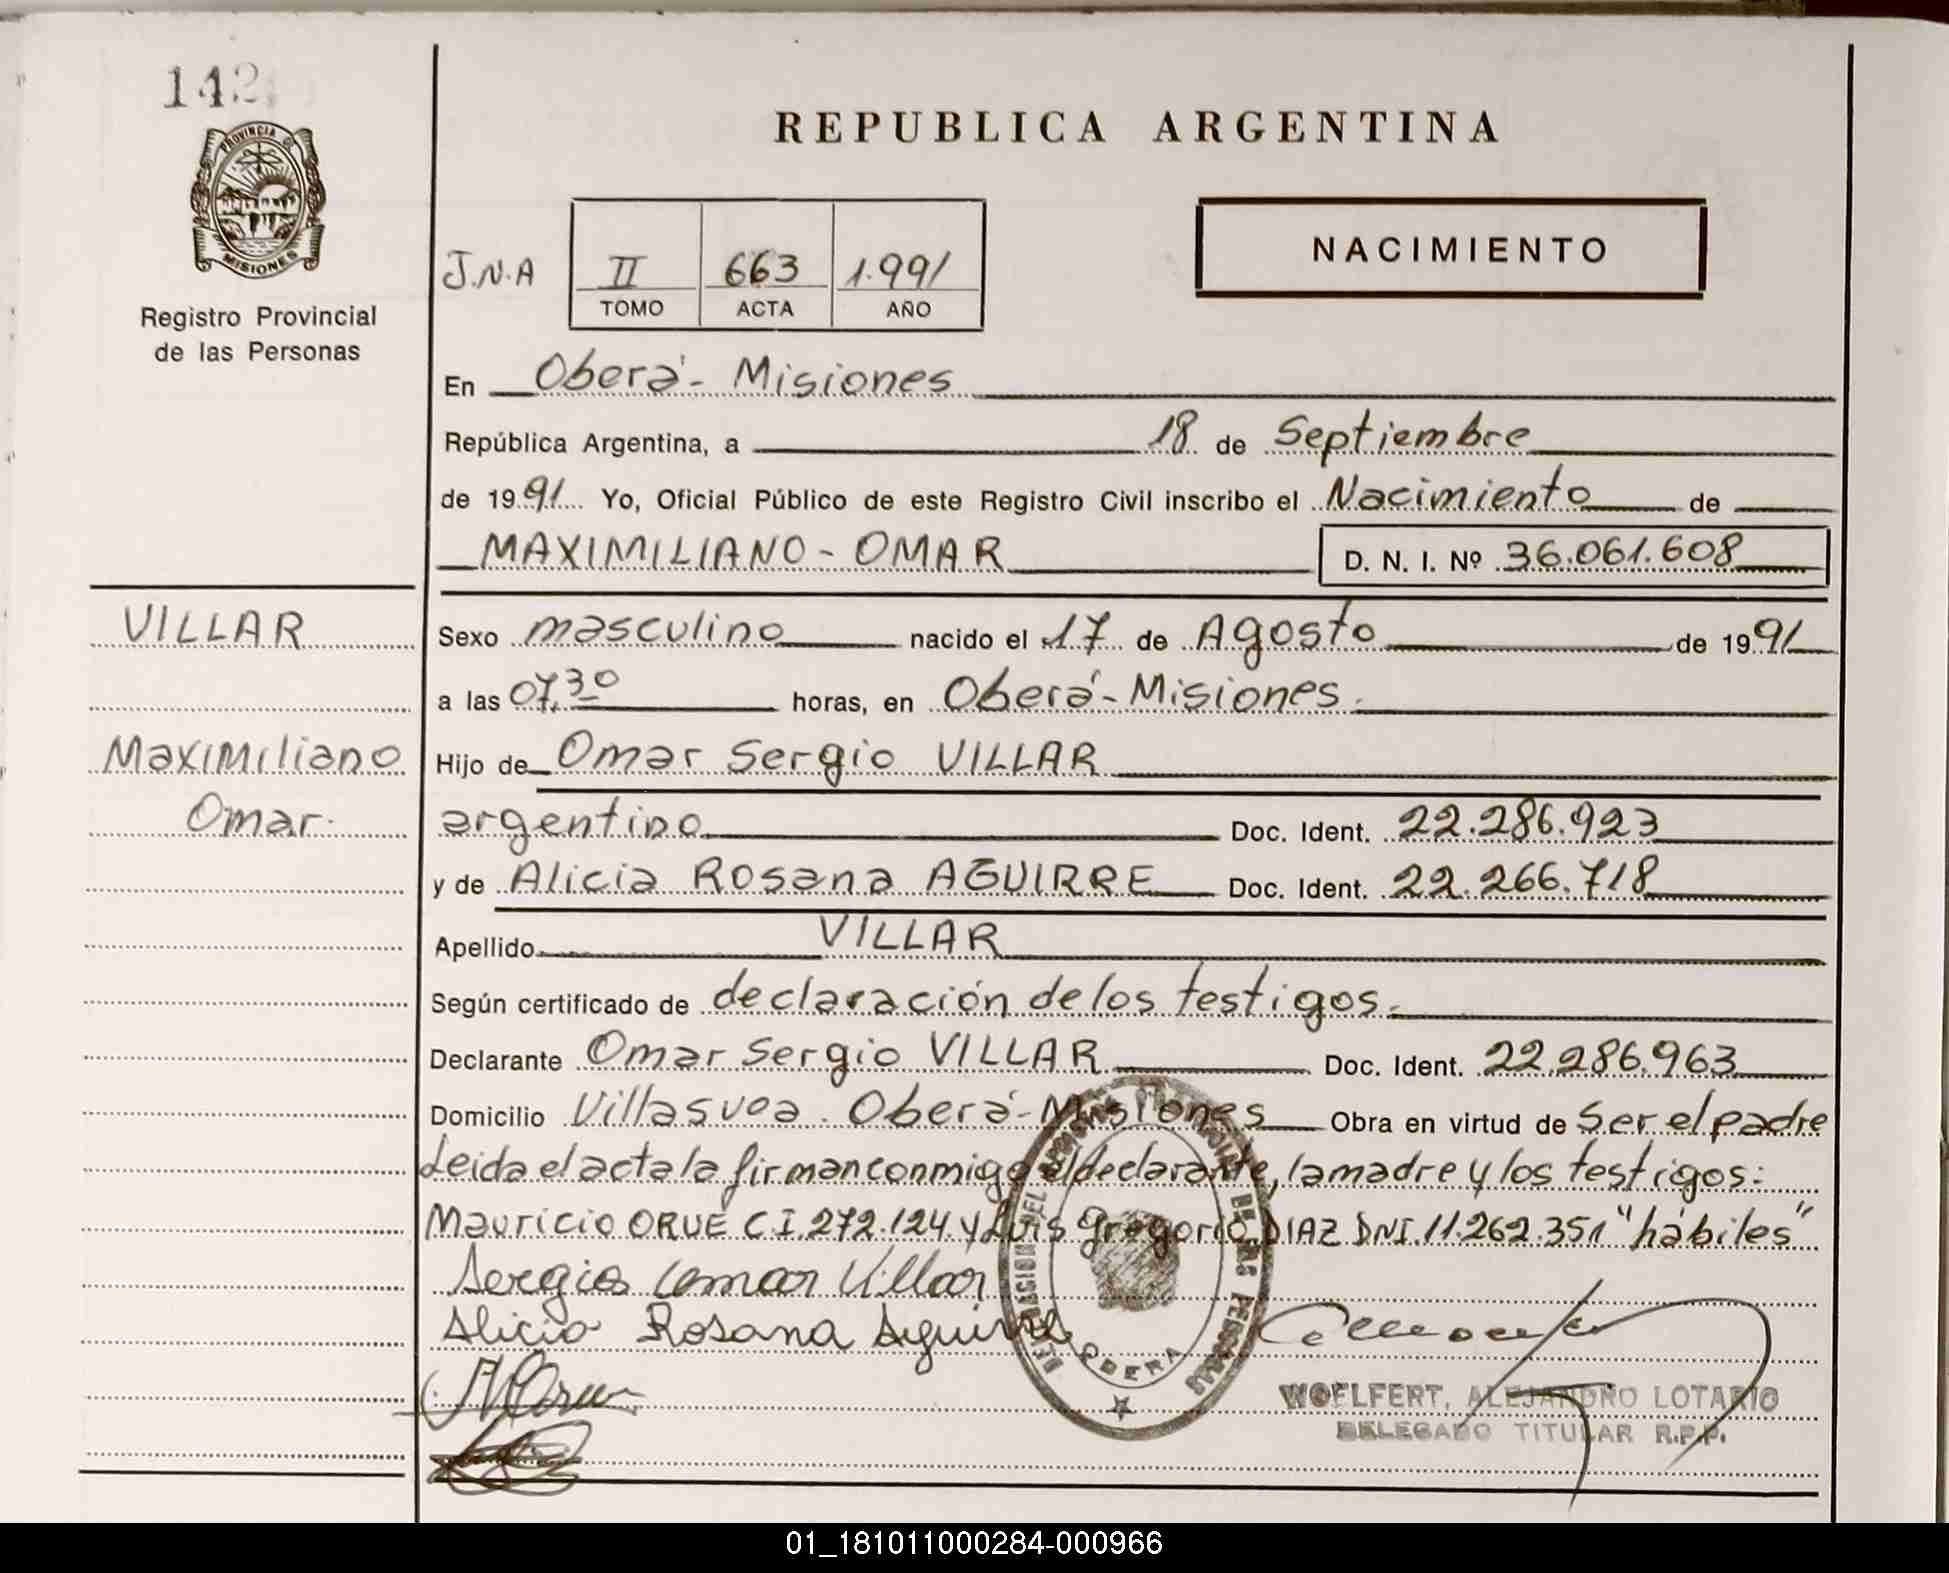 142
PROVINCIA DE
MISIONES
Registro Provincial
de las Personas
REPUBLICA ARGENTINA
NACIMIENTO
J.N.A II 663 1.991
TOMO ACTA AÑO
En Oberá - Misiones
República Argentina, a 18 de Septiembre
de 1991 Yo, Oficial Público de este Registro Civil inscribo el Nacimiento de
MAXIMILIANO - OMAR D. N. I. Nº 36.061.608
VILLAR
Maximiliano
Omar
Sexo masculino nacido el 17 de Agosto de 1991
a las 07,30 horas, en Oberá - Misiones.
Hijo de Omar Sergio VILLAR
argentino Doc. Ident. 22.286.923
y de Alicia Rosana AGUIRRE Doc. Ident. 22.266.718
Apellido VILLAR
Según certificado de declaración de los testigos.
Declarante Omar Sergio VILLAR Doc. Ident. 22.286.963
Domicilio Villasvea. Oberá - Misiones Obra en virtud de Ser el padre
Leida el acta la firman conmigo el declarante, la madre y los testigos:
Mauricio ORUE C.I. 272.124 y Luis Gregorio DIAZ DNI. 11.262.351 "hábiles"
Sergio Omar Villar
Alicia Rosana Aguirre
DELEGACION DEL REGISTRO PROVINCIAL DE LAS PERSONAS
OBERA
WOELFERT, ALEJANDRO LOTARIO
DELEGADO TITULAR R.P.P.
01_181011000284-000966